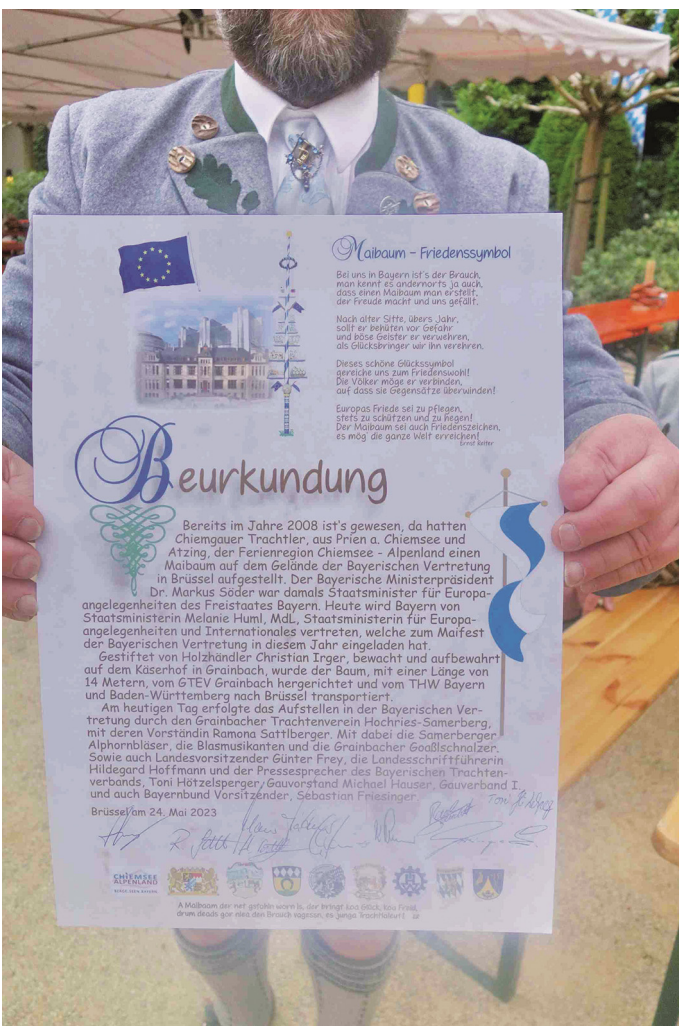 Maibaum – Friedenssymbol
Bei uns in Bayern ist's der Brauch,
man kennt es andernorts ja auch,
dass einen Maibaum man erstellt,
der Freude macht und uns gefällt.
Nach alter Sitte, übers Jahr,
sollt er behüten vor Gefahr
und böse Geister er verwehren,
als Glücksbringer wir ihn verehren.
Dieses schöne Glückssymbol
gereiche uns zum Friedenswohl!
Die Völker möge er verbinden,
auf dass sie Gegensätze überwinden!
Europas Friede sei zu pflegen,
stets zu schützen und zu hegen!
Der Maibaum sei auch Friedenszeichen,
es mög' die ganze Welt erreichen!
Beurkundung
Bereits im Jahre 2008 ist's gewesen, da hatten
Chiemgauer Trachtler, aus Prien a. Chiemsee und
Atzing, der Ferienregion Chiemsee - Alpenland einen
Maibaum auf dem Gelände der Bayerischen Vertretung
in Brüssel aufgestellt. Der Bayerische Ministerpräsident
Dr. Markus Söder war damals Staatsminister für Europa-
angelegenheiten des Freistaates Bayern. Heute wird Bayern von
Staatsministerin Melanie Huml, MdL, Staatsministerin für Europa-
angelegenheiten und Internationales vertreten, welche zum Maifest
der Bayerischen Vertretung in diesem Jahr eingeladen hat.
Gestiftet von Holzhändler Christian Irger, bewacht und aufbewahrt
auf dem Käserhof in Grainbach, wurde der Baum, mit einer Länge von
14 Metern, vom GTEV Grainbach hergerichtet und vom THW Bayern
und Baden-Württemberg nach Brüssel transportiert.
Am heutigen Tag erfolgte das Aufstellen in der Bayerischen Ver-
tretung durch den Grainbacher Trachtenverein Hochries-Samerberg,
mit deren Vorständin Ramona Sattlberger. Mit dabei die Samerberger
Alphornbläser, die Blasmusikanten und die Grainbacher Goaßlschnalzer.
Sowie auch Landesvorsitzender Günter Frey, die Landesschriftführerin
Hildegard Hoffmann und der Pressesprecher des Bayerischen Trachten-
verbands, Toni Hötzelsperger, Gauvorstand Michael Hauser, Gauverband I
und auch Bayernbund Vorsitzender, Sebastian Friesinger
Brüssel am 24. Mai 2023
CHIEMSEE
ALPENLAND
A Maibaam der net gstuhln worn is, der bringt koa Glück, koa Freid,